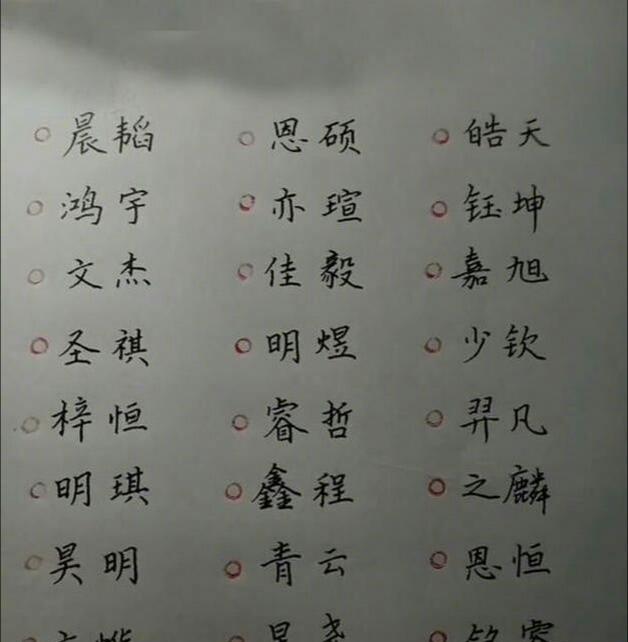 晨韬 恩硕 皓天
鸿宇 亦瑄 钰坤
文杰 佳毅 嘉旭
圣祺 明煜 少钦
梓恒 睿哲 羿凡
明琪 鑫程 之麟
昊明 青云 恩恒